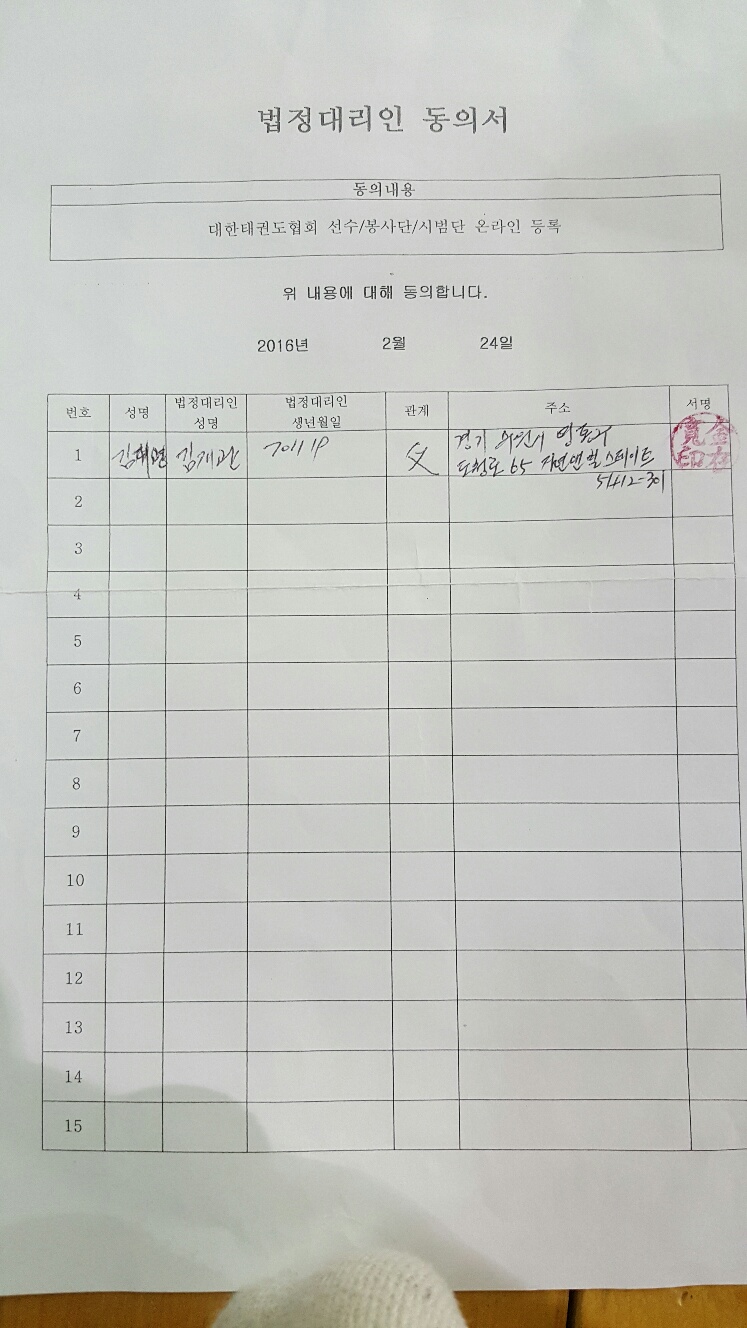 법정대리인 동의서
동의내용
대한태권도협회 선수/봉사단/시범단 온라인 등록
위 내용에 대해 동의합니다.
2016년 2월 24일
번호 성명 법정대리인 성명 법정대리인 생년월일 관계 주소 서명
1 김재관 701119 父 경기 수원시 영통구
도청로 65 자연앤힐스테이트
5412-301
2
3
4
5
6
7
8
9
10
11
12
13
14
15